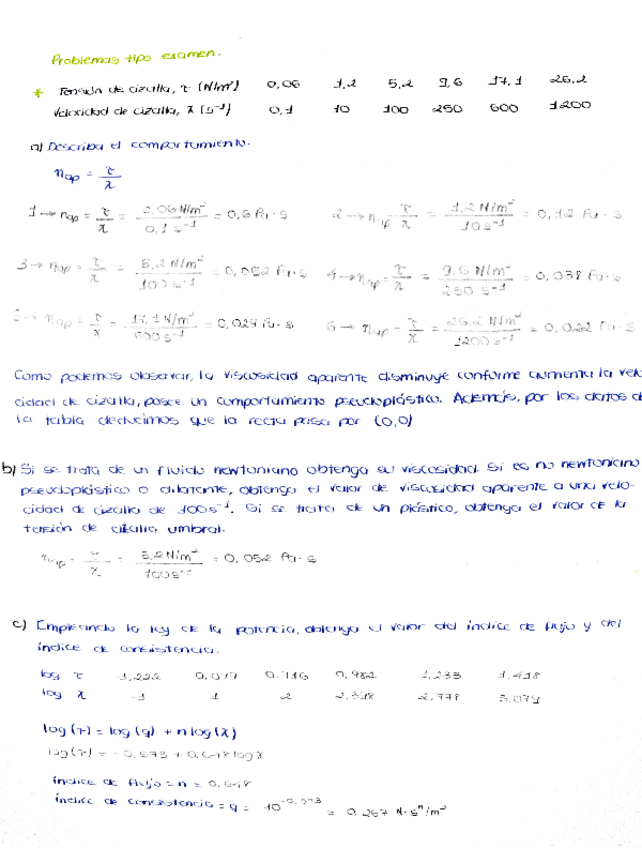 Problemas tipo examen.
* Tensión de cizalla, τ (N/m²) 0,06 1,2 5,2 9,6 17,1 26,2
Velocidad de cizalla, ẋ (s⁻¹) 0,1 10 100 250 600 1200
a) Describa el comportamiento.
nap = τ/ẋ
1 → nap = τ/ẋ = 0,06 N/m²/0,1 s⁻¹ = 0,6 Pa·s 2 → nap = τ/ẋ = 1,2 N/m²/10 s⁻¹ = 0,12 Pa·s
3 → nap = τ/ẋ = 5,2 N/m²/100 s⁻¹ = 0,052 Pa·s 4 → nap = τ/ẋ = 9,6 N/m²/250 s⁻¹ = 0,038 Pa·s
5 → nap = τ/ẋ = 17,1 N/m²/600 s⁻¹ = 0,029 Pa·s 6 → nap = τ/ẋ = 26,2 N/m²/1200 s⁻¹ = 0,022 Pa·s
Como podemos observar, la viscosidad aparente disminuye conforme aumenta la velo
cidad de cizalla, posee un comportamiento pseudoplástico. Además, por los datos d
la tabla deducimos que la recta pasa por (0,0)
b) Si se trata de un fluido newtoniano obtenga su viscosidad. Si es no newtoniano
pseudoplástico o dilatante, obtenga el valor de viscosidad aparente a una velo-
cidad de cizalla de 100s⁻¹. Si se trata de un plástico, obtenga el valor de la
tensión de cizalla umbral.
nap = τ/ẋ = 5,2 N/m²/100 s⁻¹ = 0,052 Pa·s
c) Empleando la ley de la potencia, obtenga el valor del índice de flujo y del
índice de consistencia.
log τ -1,222 0,079 0,716 0,982 1,233 1,418
log ẋ -1 1 2 2,398 2,778 3,079
log(τ) = log(q) + n log(ẋ)
log(τ) = -0,573 + 0,648 log ẋ
índice de flujo = n = 0,648
índice de consistencia = q = 10^-0,573 = 0,267 N·sⁿ/m²